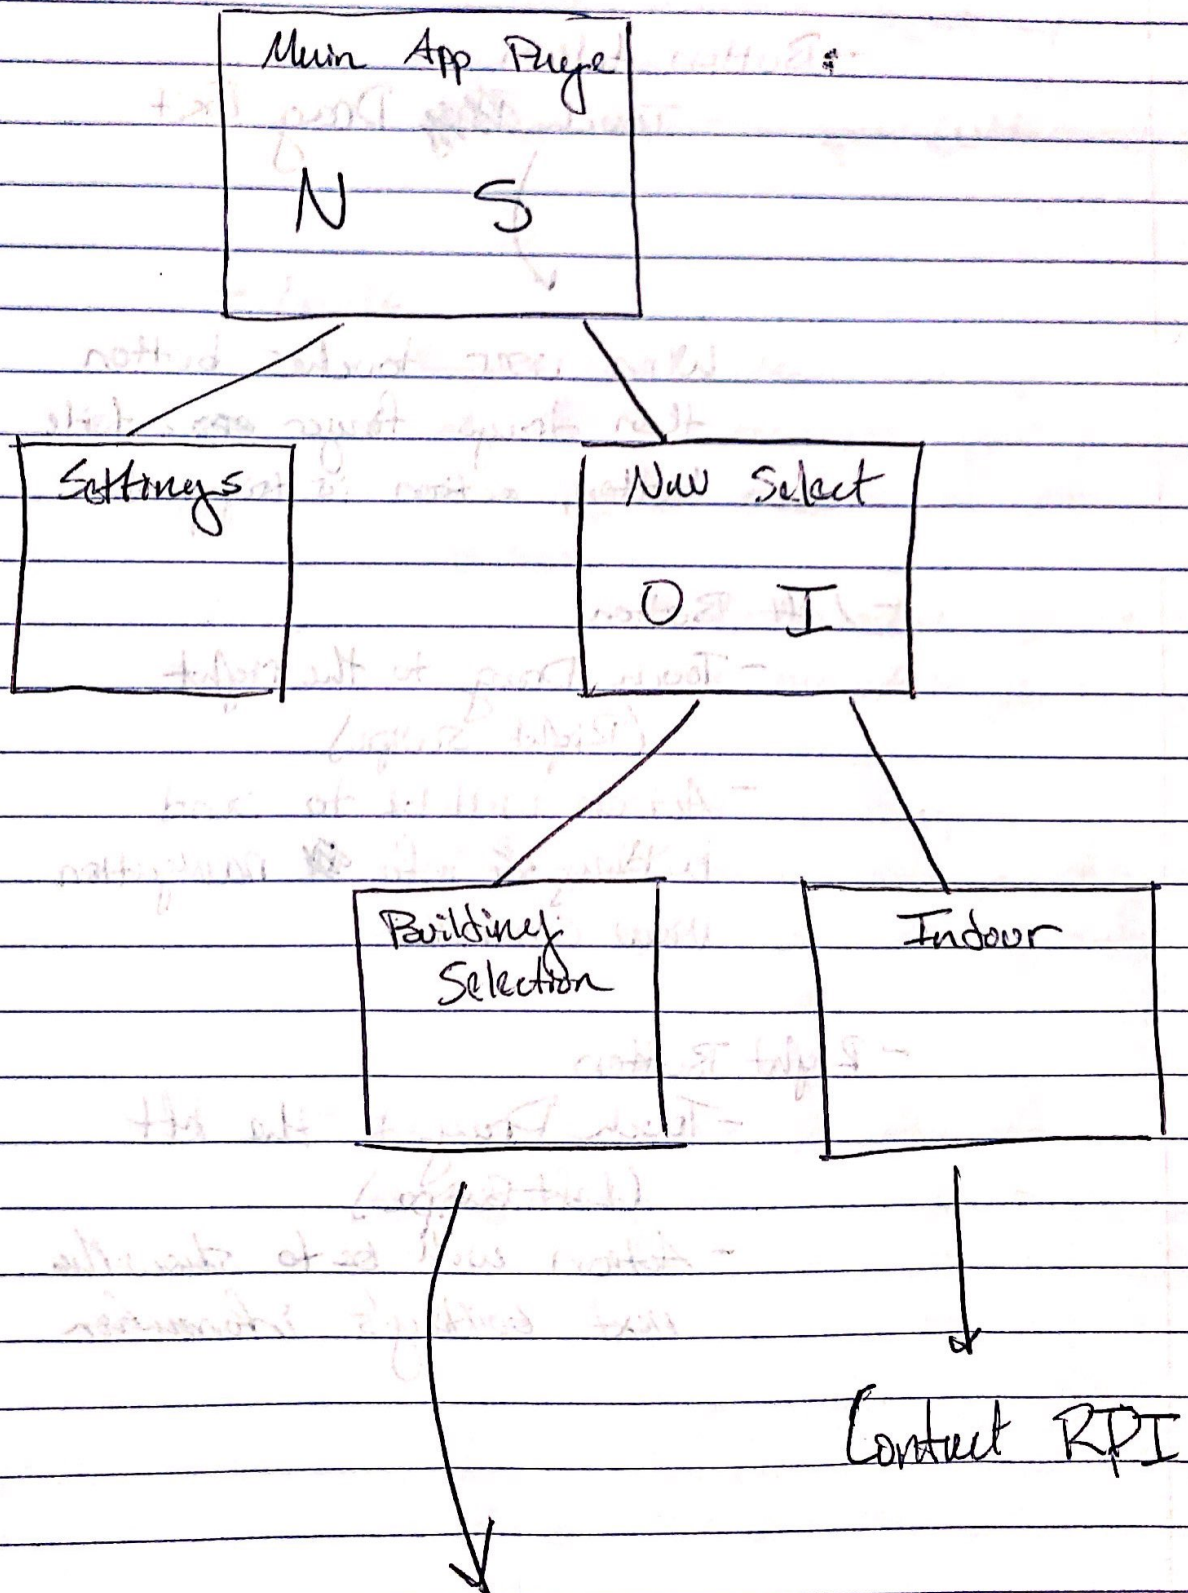 Main App Page
N S
Settings
Nav Select
O I
Building
Selection
Indoor
Contact RPI